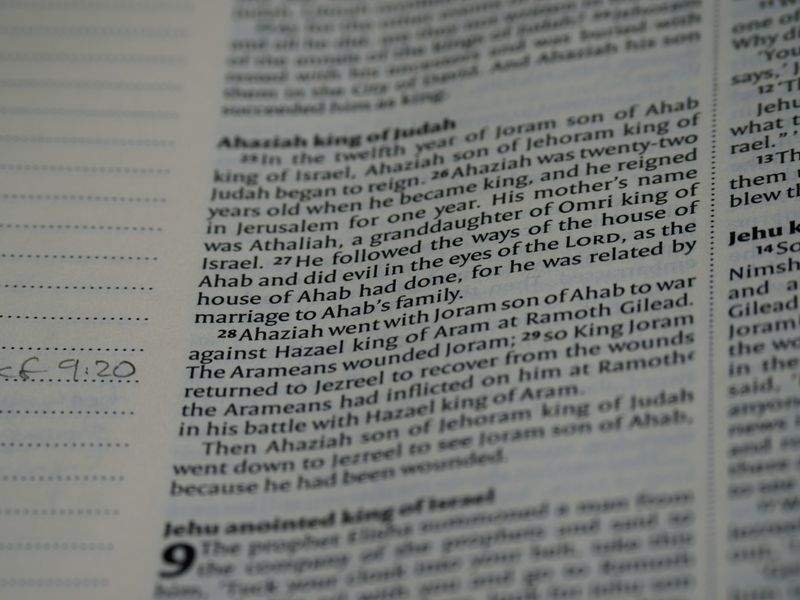 cf 9:20
of the annals of the kings of Judah? Jehoram
rested with his ancestors and was buried with
them in the City of David. And Ahaziah his son
succeeded him as king.
Ahaziah king of Judah
25 In the twelfth year of Joram son of Ahab
king of Israel, Ahaziah son of Jehoram king of
Judah began to reign. 26 Ahaziah was twenty-two
years old when he became king, and he reigned
in Jerusalem for one year. His mother’s name
was Athaliah, a granddaughter of Omri king of
Israel. 27 He followed the ways of the house of
Ahab and did evil in the eyes of the LORD, as the
house of Ahab had done, for he was related by
marriage to Ahab’s family.
28 Ahaziah went with Joram son of Ahab to war
against Hazael king of Aram at Ramoth Gilead.
The Arameans wounded Joram; 29 so King Joram
returned to Jezreel to recover from the wounds
the Arameans had inflicted on him at Ramoth
in his battle with Hazael king of Aram.
Then Ahaziah son of Jehoram king of Judah
went down to Jezreel to see Joram son of Ahab,
because he had been wounded.
Jehu anointed king of Israel
9 The prophet Elisha summoned a man from
the company of the prophets and said to
him, ‘Tuck your cloak into your belt, take this
one of
Why di
‘You
says,’ J
12 ‘T
Jehu
what t
rael.” ’
13 Th
them u
blew th
Jehu k
14 So
Nimsh
and a
Gilead
Joram
the wo
in the
said, ‘
anyon
news i